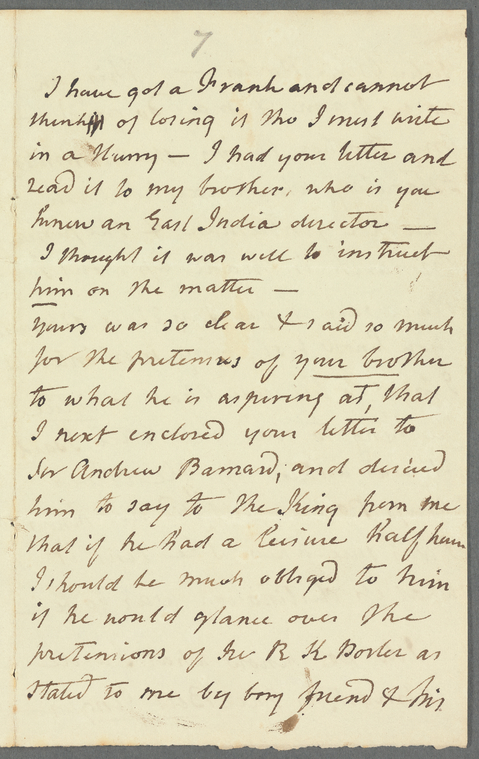 7
I have got a Frank and cannot
think of losing it tho I must write
in a Hurry — I had your letter and
read it to my brother, who is you
know an East India director —
I thought it was well to instruct
him on the matter —
Yours was so clear & said so much
for the pretensions of your brother
to what he is aspiring at, that
I next enclosed your letter to
Sir Andrew Barnard, and desired
him to say to the King from me
that if he had a leisure half hour
I should be much obliged to him
if he would glance over the
pretensions of Sir R K Porter as
stated to me by my friend & his